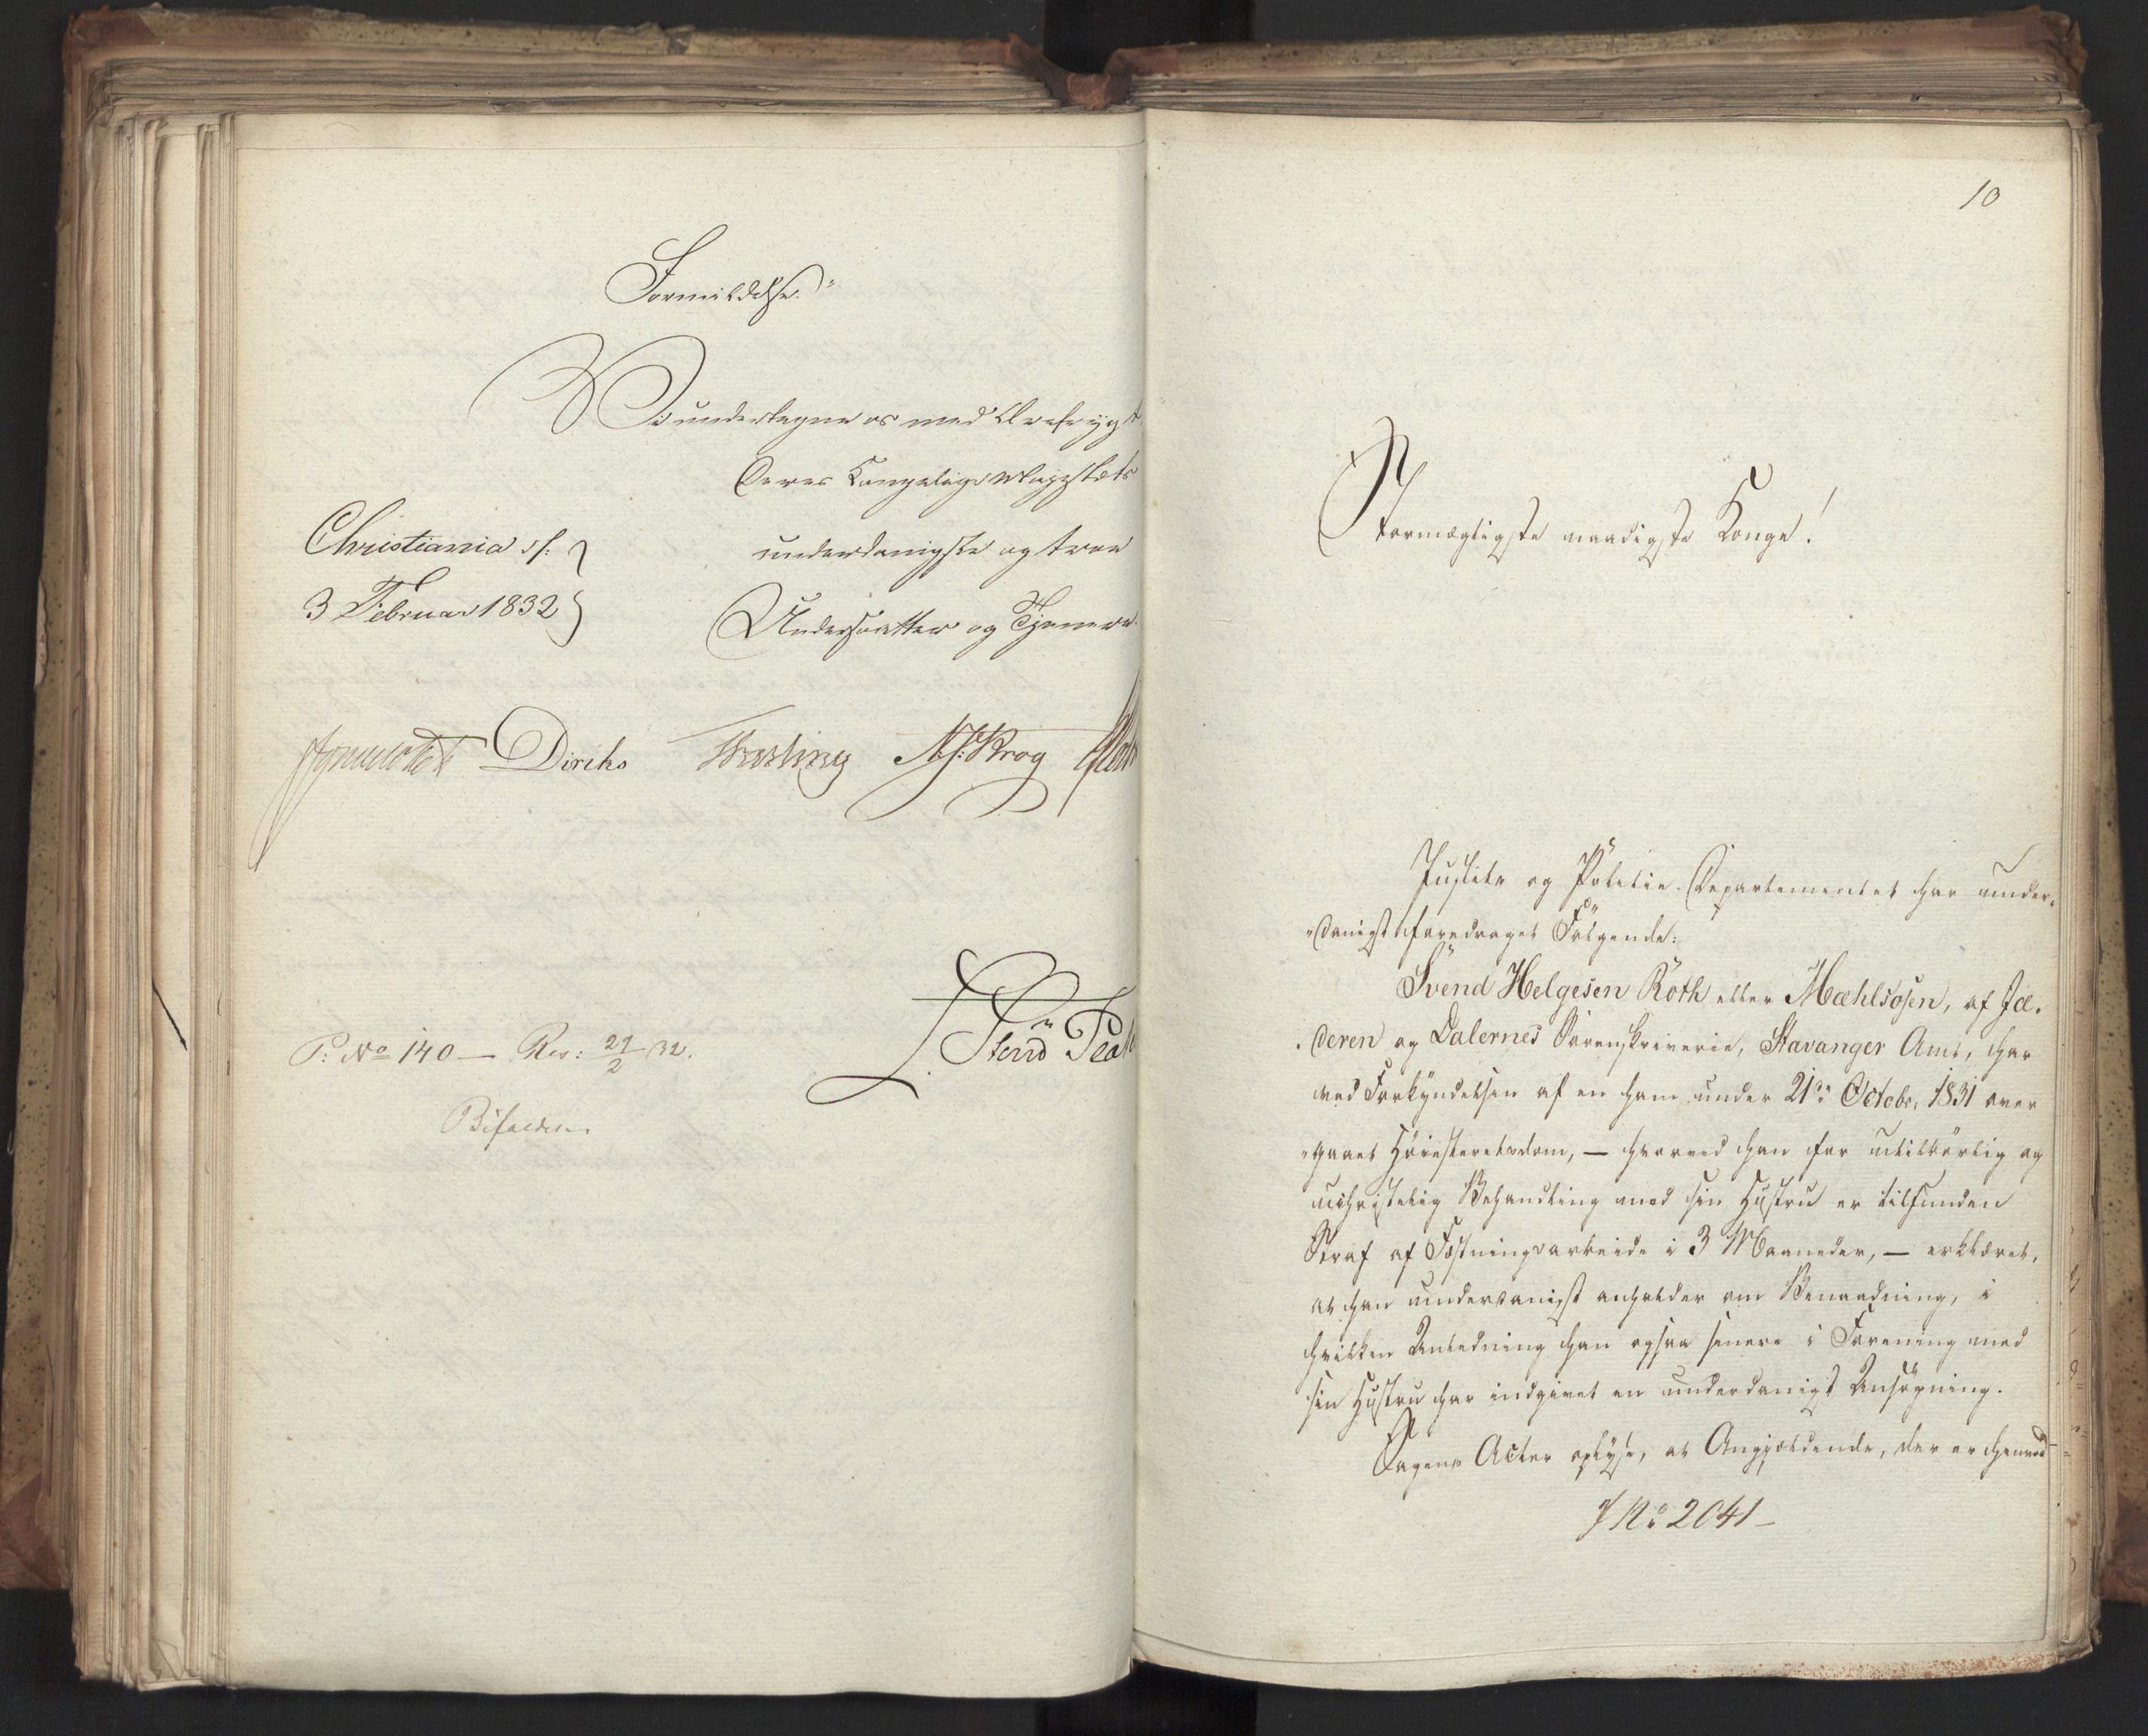 Formildelse."
Vi undertegne os med Ærefrygt
Deres Kongelige Majestæts
underdanigste og troe
Undersaatter og Tjenere.
Christiania d:
3 Februar 1832
Diriks
N. J. Krog
P: No 140 — Res: 21/2 32.
Bifaldes.
10
Stormægtigste naadigste Konge!
Justits og Politie-Departementet har under-
danigst foredraget Følgende:
Svend Helgesen Röth eller Mæhlsosen, af Jæ-
deren og Dalernes Sorenskriverie, Stavanger Amt, har
ved Forkyndelsen af en ham under 21de Octobr. 1831 over
gaaet Høiesteretsdom, — hvorved han for utilbörlig og
uchristelig Behandling mod sin Hustru er tilfunden
Straf af Fæstningsarbeide i 3 Maaneder, — erklæret,
at han underdanigst anholder om Benaadning, i
hvilken Anledning han ogsaa senere i Forening med
sin Hustru har indgivet en underdanigst Ansögning.
Sagens Acter oplyse, at Angjældende, der er henved
J No 2041 —